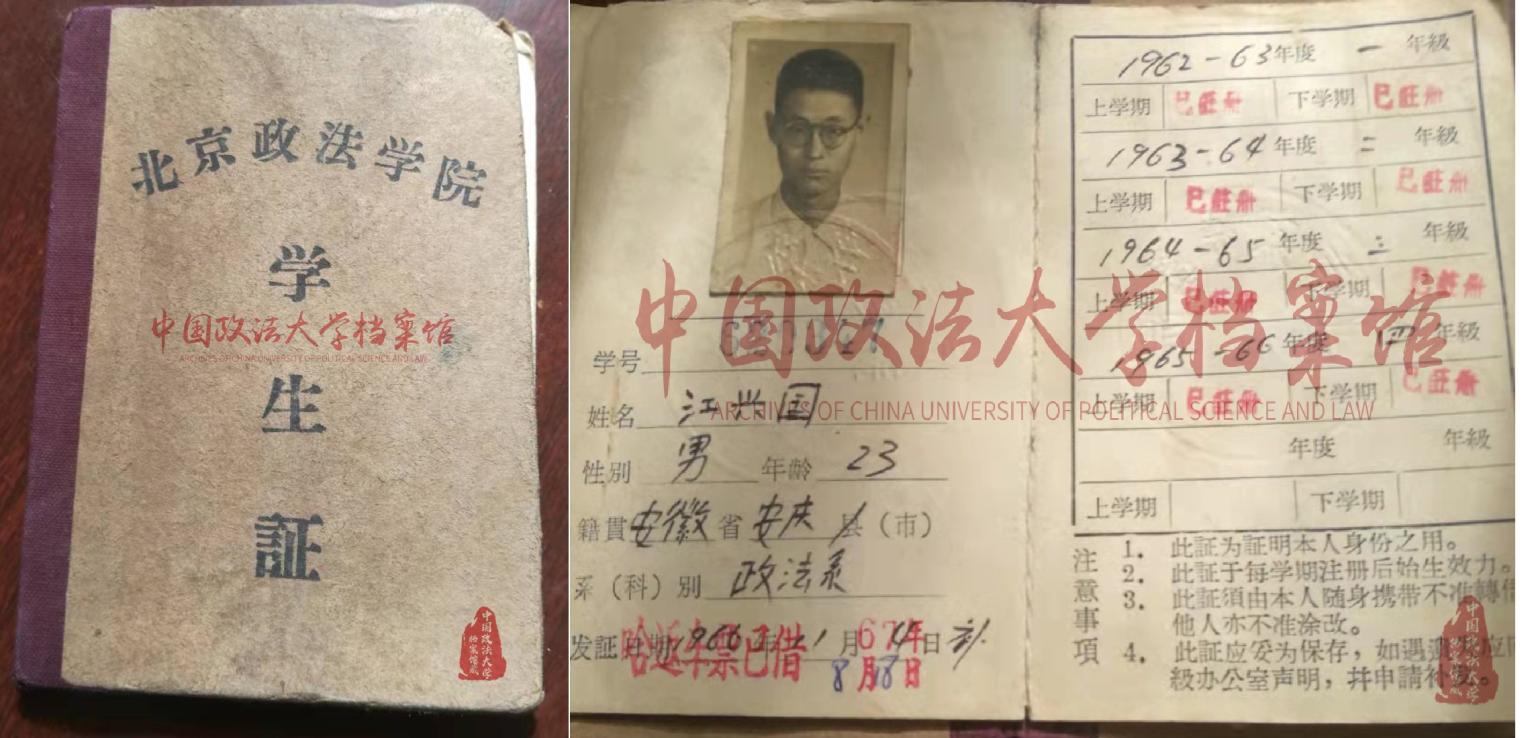 北京政法学院
学
生
証
中国政法大学档案馆
ARCHIVES OF CHINA UNIVERSITY OF POLITICAL SCIENCE AND LAW
中国政法大学
档案馆藏
学号
姓名 江兴国
性别 男 年龄 23
籍貫 安徽 省 安庆 县（市）
系（科）別 政法系
发証日期 1966年 1月 4日 补
哈返车票已借 67年
8月18日
1962-63年度 一 年級
上学期 已註册 下学期 已註册
1963-64年度 二 年級
上学期 已註册 下学期 已註册
1964-65年度 三 年級
上学期 已註册 下学期 已註册
1965-66年度 四 年級
上学期 已註册 下学期 已註册
年度 年級
上学期 下学期
注意事項
1. 此証为証明本人身份之用。
2. 此証于每学期注册后始生效力。
3. 此証須由本人随身携带不准轉借
他人亦不准涂改。
4. 此証应妥为保存，如遇
級办公室声明，幷申請补
中国政法大学档案馆
ARCHIVES OF CHINA UNIVERSITY OF POLITICAL SCIENCE AND LAW
中国政法大学